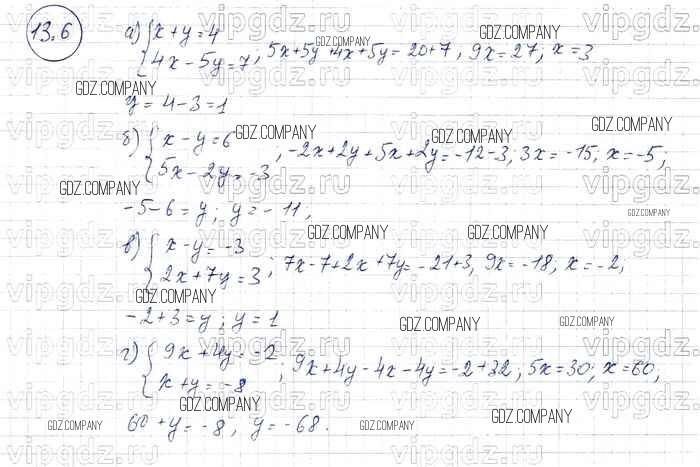 13.6
а) { x+y=4
4x-5y=7 ; 5x+5y+4x+5y=20+7, 9x=27; x=3
y=4-3=1
б) { x-y=6
5x-2y=-3 ; -2x+2y+5x+2y=-12-3; 3x=-15; x=-5;
-5-6=y; y=-11;
в) { x-y=-3
2x+7y=3 ; 7x-7+2x+7y=-21+3, 9x=-18, x=-2,
-2+3=y; y=1
г) { 9x+4y=-2
x+y=-8 ; 9x+4y-4x-4y=-2+32; 5x=30; x=60,
60+y=-8, y=-68.
GDZ.COMPANY
vipgdz.ru